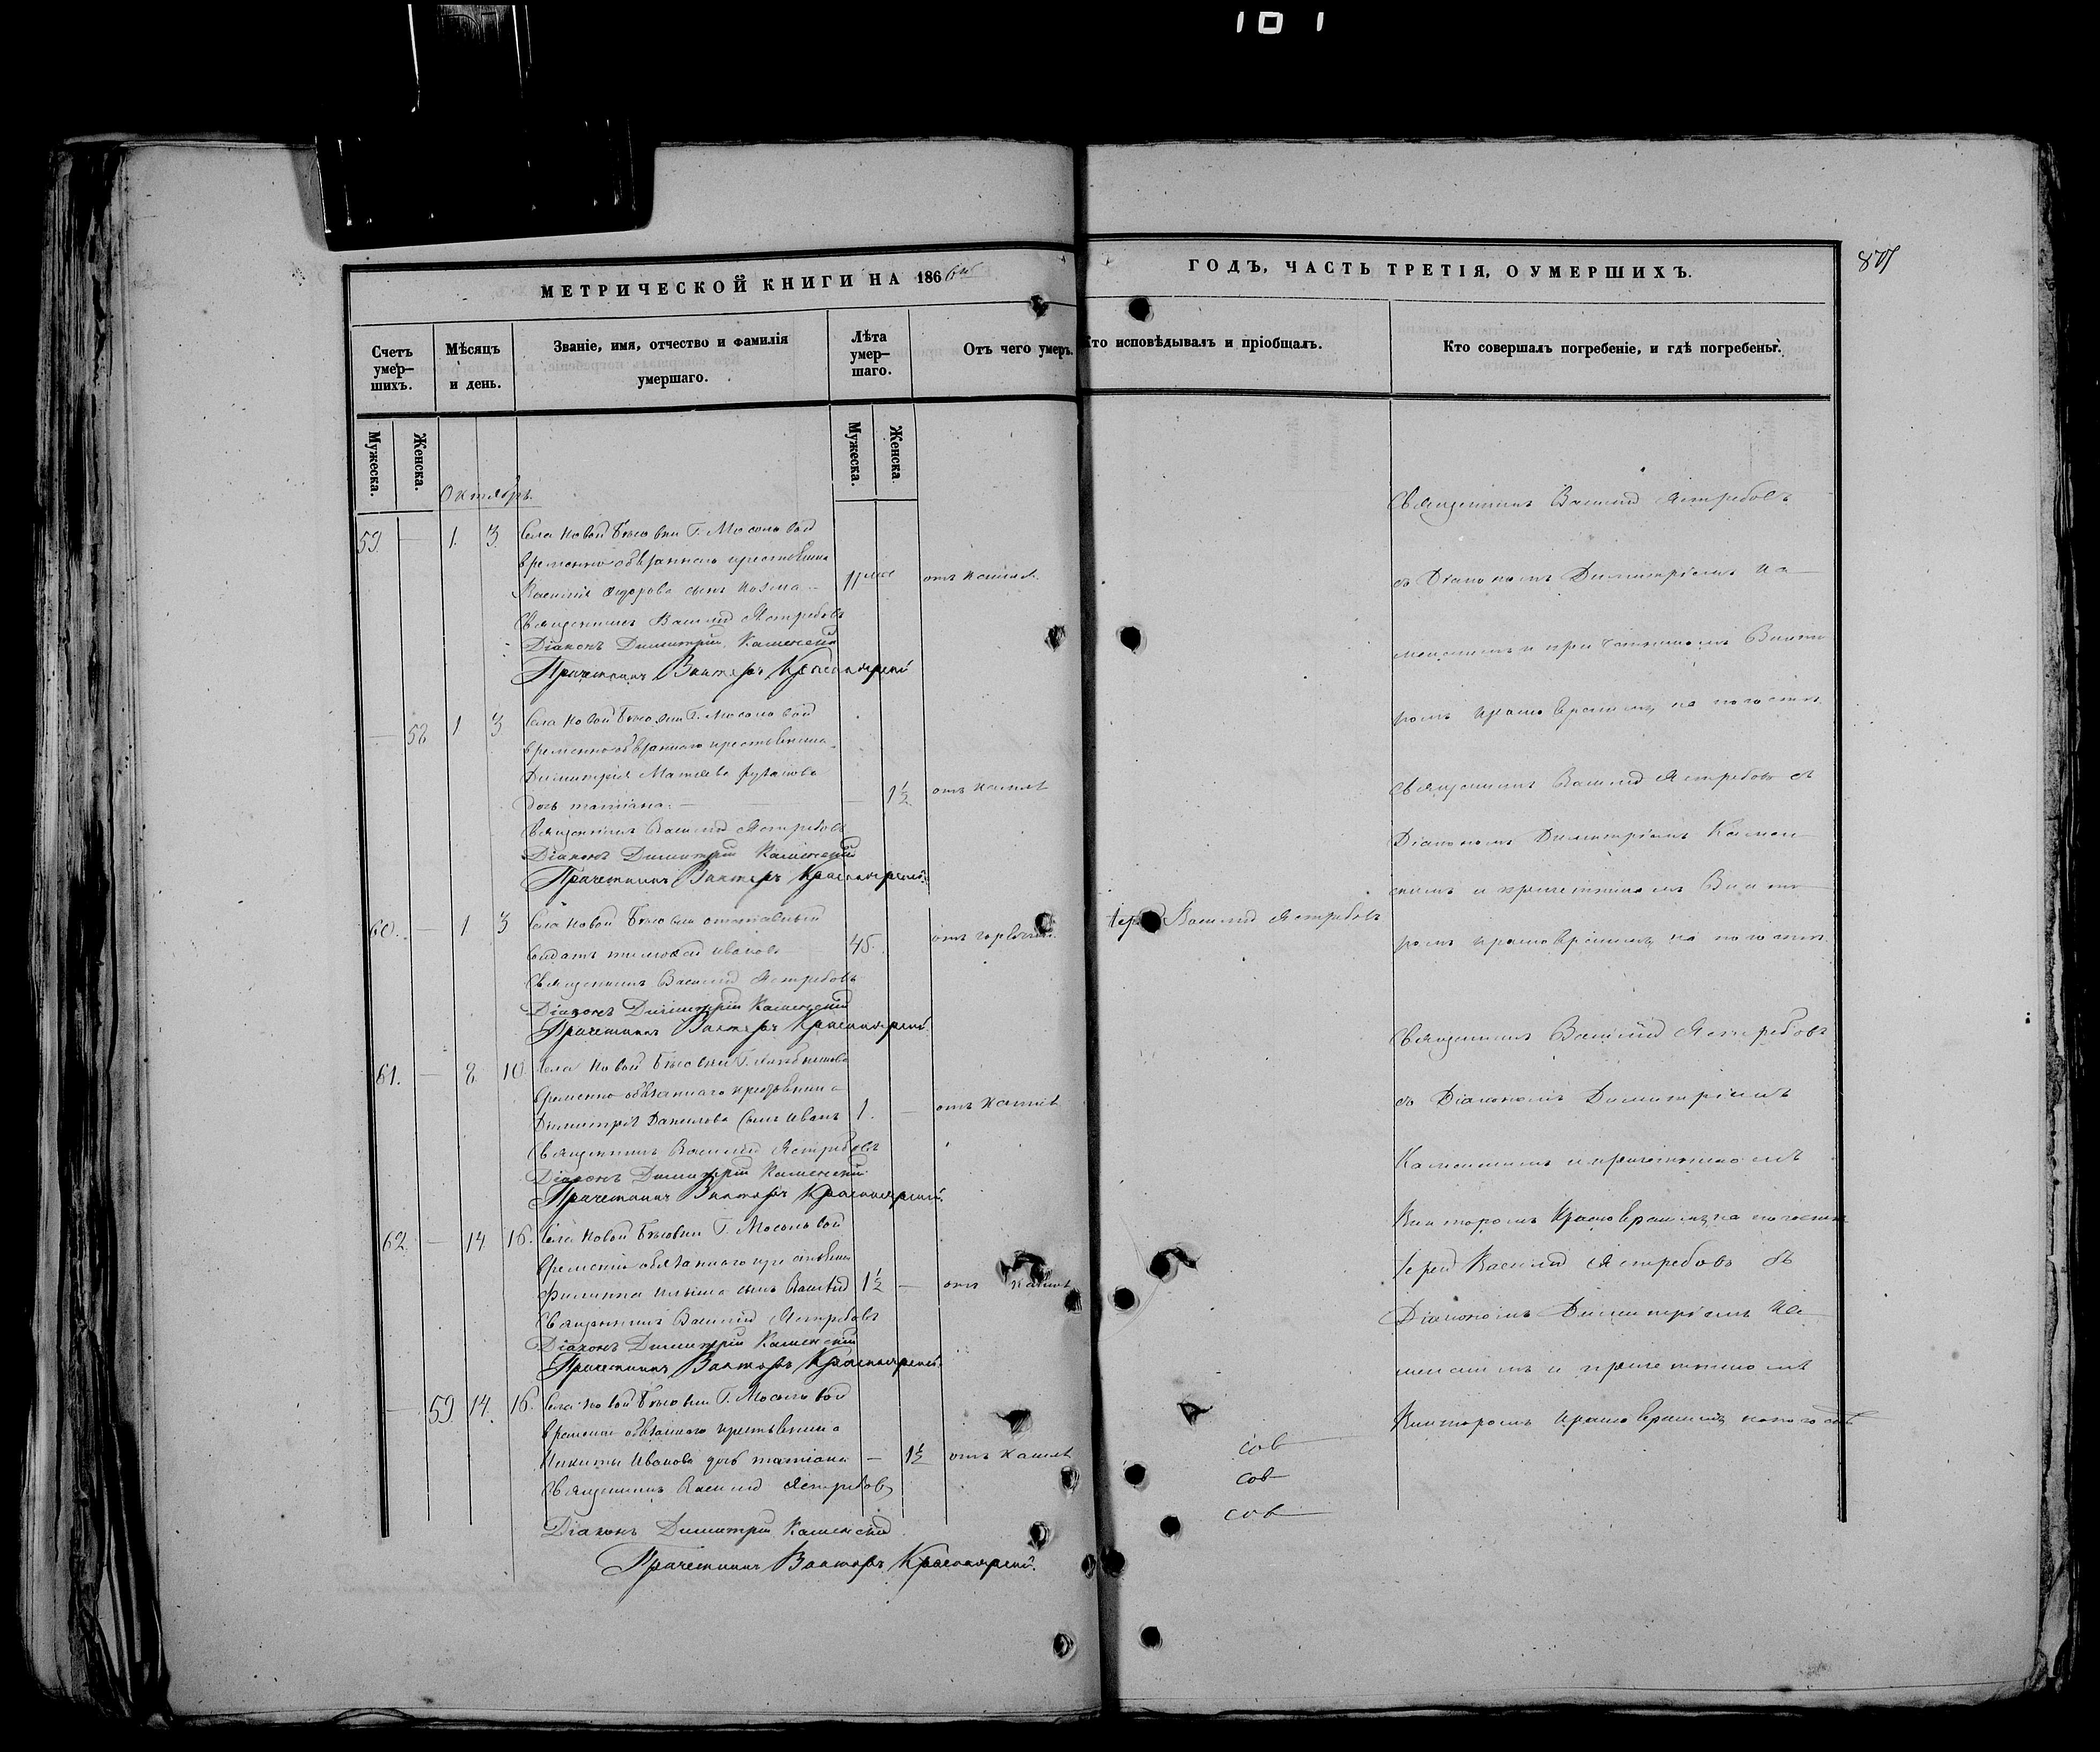 101
МЕТРИЧЕСКОЙ КНИГИ НА 186
ГОДЪ, ЧАСТЬ ТРЕТІЯ, О УМЕРШИХЪ.
Счетъ умер-
шихъ.
Мѣсяцъ
и день.
Званіе, имя, отчество и фамилія
умершаго.
Лѣта
умер-
шаго.
Отъ чего умеръ.
Кто исповѣдывалъ и пріобщалъ.
Кто совершалъ погребеніе, и гдѣ погребены.
Мужеска.
Женска.
Мужеска.
Женска
Октябрь.
59. — 1. 3. Села Новой г. Мосоловой
временно обязаннаго крестьянина
Василія Ѳедорова сынъ Козма
отъ кашля
Священникъ Василій Ястребовъ
Діаконъ Димитрій Каменскій
Причетникъ Викторъ Красноярскій
— 58 1 3 Села Новой г. Мосоловой
временно обязаннаго крестьянина
Димитрія
дочь Татіана — 1½ отъ кашля
Священникъ Василій Ястребовъ
Діаконъ Димитрій Каменскій
Причетникъ Викторъ Красноярскій
60. — 1 3 Села Новой отставный
солдатъ Тимофей Ивановъ 45. отъ горячки.
Іерей Василій Ястребовъ
Священникъ Василій Ястребовъ
Діаконъ Димитрій Каменскій
Причетникъ Викторъ Красноярскій
61. — 8 10 Села Новой
временно обязаннаго крестьянина
Димитрія Данилова сынъ Иванъ 1. — отъ кашля
Священникъ Василій Ястребовъ
Діаконъ Димитрій Каменскій
Причетникъ Викторъ Красноярскій
62. — 14 16. Села Новой г. Мосоловой
временно обязаннаго крестьянина
Филиппа Ильина сынъ Василій 1½ — отъ кашля
Священникъ Василій Ястребовъ
Діаконъ Димитрій Каменскій
Причетникъ Викторъ Красноярскій
— 59 14. 16. Села Новой г. Мосоловой
временно обязаннаго крестьянина
Никиты Иванова дочь Татіана — 1½ отъ кашля
Священникъ Василій Ястребовъ
Діаконъ Димитрій Каменскій
Причетникъ Викторъ Красноярскій.
Священникъ Василій Ястребовъ
съ Діакономъ Димитріемъ Ка—
менскимъ и причетникомъ Викто
ромъ Красноярскимъ, на погостѣ.
Священникъ Василій Ястребовъ съ
Діакономъ Димитріемъ Камен—
скимъ и причетникомъ Викто—
ромъ Красноярскимъ на погостѣ.
Священникъ Василій Ястребовъ
съ Діакономъ Димитріемъ
Каменскимъ и причетникомъ
Викторомъ Красноярскимъ, на погостѣ
Іерей Василій Ястребовъ съ
Діакономъ Димитріемъ Ка—
менскимъ и причетникомъ
Викторомъ Красноярскимъ на погостѣ